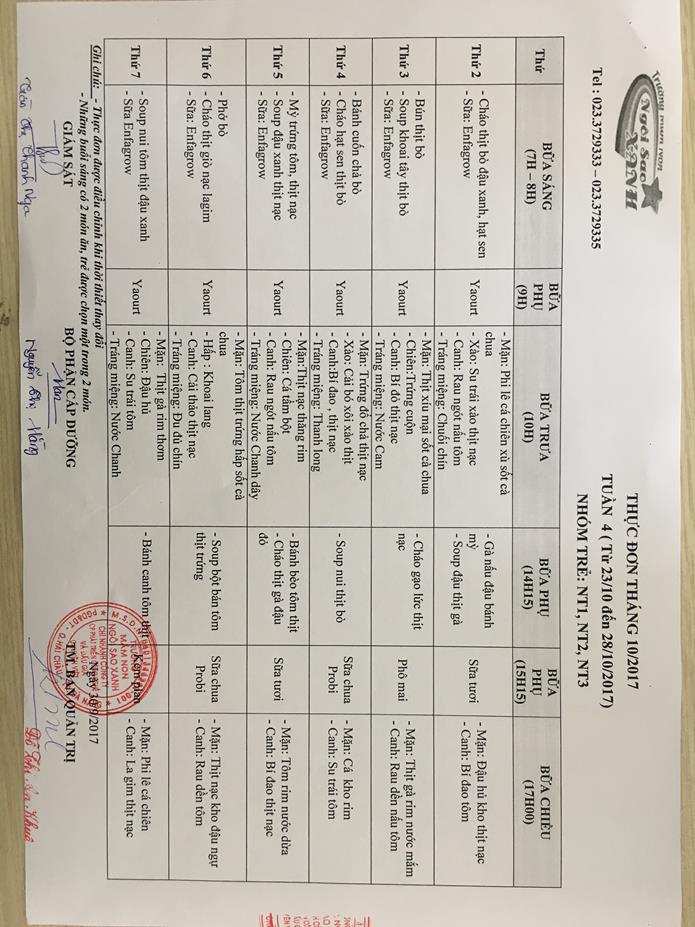 Trường mầm non
Ngôi Sao
XANH
Tel : 023.3729333 – 023.3729335
THỰC ĐƠN THÁNG 10/2017
TUẦN 4 ( Từ 23/10 đến 28/10/2017)
NHÓM TRẺ: NT1, NT2, NT3
Thứ
BỮA SÁNG
(7H – 8H)
BỮA
PHỤ
(9H)
BỮA TRƯA
(10H)
BỮA PHỤ
(14H15)
BỮA
PHỤ
(15H15)
BỮA CHIỀU
(17H00)
Thứ 2
- Cháo thịt bò đậu xanh, hạt sen
- Sữa: Enfagrow
Yaourt
- Mặn: Phi lê cá chiên xù sốt cà
chua
- Xào: Su trái xào thịt nạc
- Canh: Rau ngót nấu tôm
- Tráng miệng: Chuối chín
- Gà nấu đậu bánh
mỳ
- Soup đậu thịt gà
Sữa tươi
- Mặn: Đậu hủ kho thịt nạc
- Canh: Bí đao tôm
Thứ 3
- Bún thịt bò
- Soup khoai tây thịt bò
- Sữa: Enfagrow
Yaourt
- Mặn: Thịt xíu mại sốt cà chua
- Chiên:Trứng cuộn
- Canh: Bí đỏ thịt nạc
- Tráng miệng: Nước Cam
- Cháo gạo lức thịt
nạc
Phô mai
- Mặn: Thịt gà rim nước mắm
- Canh: Rau dền nấu tôm
Thứ 4
- Bánh cuốn chả bò
- Cháo hạt sen thịt bò
- Sữa: Enfagrow
Yaourt
- Mặn: Trứng đổ chả thịt nạc
- Xào: Cải bó xôi xào thịt
- Canh:Bí đao , thịt nạc
- Tráng miệng: Thanh long
- Soup nui thịt bò
Sữa chua
Probi
- Mặn: Cá kho rim
- Canh: Su trái tôm
Thứ 5
- Mỳ trứng tôm, thịt nạc
- Soup đậu xanh thịt nạc
- Sữa: Enfagrow
Yaourt
- Mặn:Thịt nạc thăng rim
- Chiên: Cá tẩm bột
- Canh: Rau ngót nấu tôm
- Tráng miệng: Nước Chanh dây
- Bánh bèo tôm thịt
- Cháo thịt gà đậu
đỏ
Sữa tươi
- Mặn: Tôm rim nước dừa
- Canh: Bí đao thịt nạc
Thứ 6
- Phở bò
- Cháo thịt giò nạc lagim
- Sữa: Enfagrow
Yaourt
- Mặn: Tôm thịt trứng hấp sốt cà
chua
- Hấp : Khoai lang
- Canh: Cải thảo thịt nạc
- Tráng miệng: Đu đủ chín
- Soup bột bán tôm
thịt trứng
Sữa chua
Probi
- Mặn: Thịt nạc kho đậu ngự
- Canh: Rau dền tôm
Thứ 7
- Soup nui tôm thịt đậu xanh
- Sữa: Enfagrow
Yaourt
- Mặn: Thịt gà rim thơm
- Chiên: Đậu hủ
- Canh: Su trái tôm
- Tráng miệng: Nước Chanh
- Bánh canh tôm thịt
Kem plan
- Mặn: Phi lê cá chiên
- Canh: La gim thịt nạc
Ghi chú: - Thực đơn được điều chỉnh khi thời thiết thay đổi
- Những buổi sáng có 2 món ăn, trẻ được chọn một trong 2 món.
Ngày 30/9/2017
GIÁM SÁT
BỘ PHẬN CẤP DƯỠNG
TM.BAN QUẢN TRỊ
MẦM NON
NGÔI SAO XANH
CHI NHÁNH CÔNG TY
Q.HẢI CHÂU